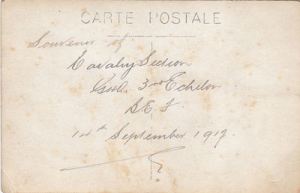 CARTE POSTALE
Souvenir of
Cavalry Section
3rd Echelon
B E F
September 1917.